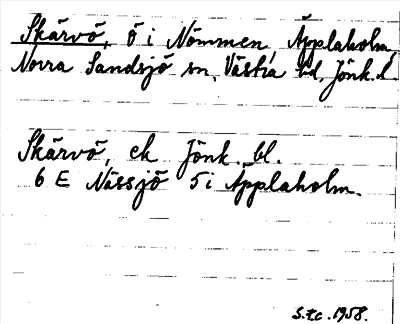 Skärvö, ö i Nömmen, Äpplaholm,
Norra Sandsjö sn, Västra hd, Jönk. l.
Skärvö, ek Jönk. bl.
6 E Nässjö 5 i Äpplaholm.
S.F.C. 1958.